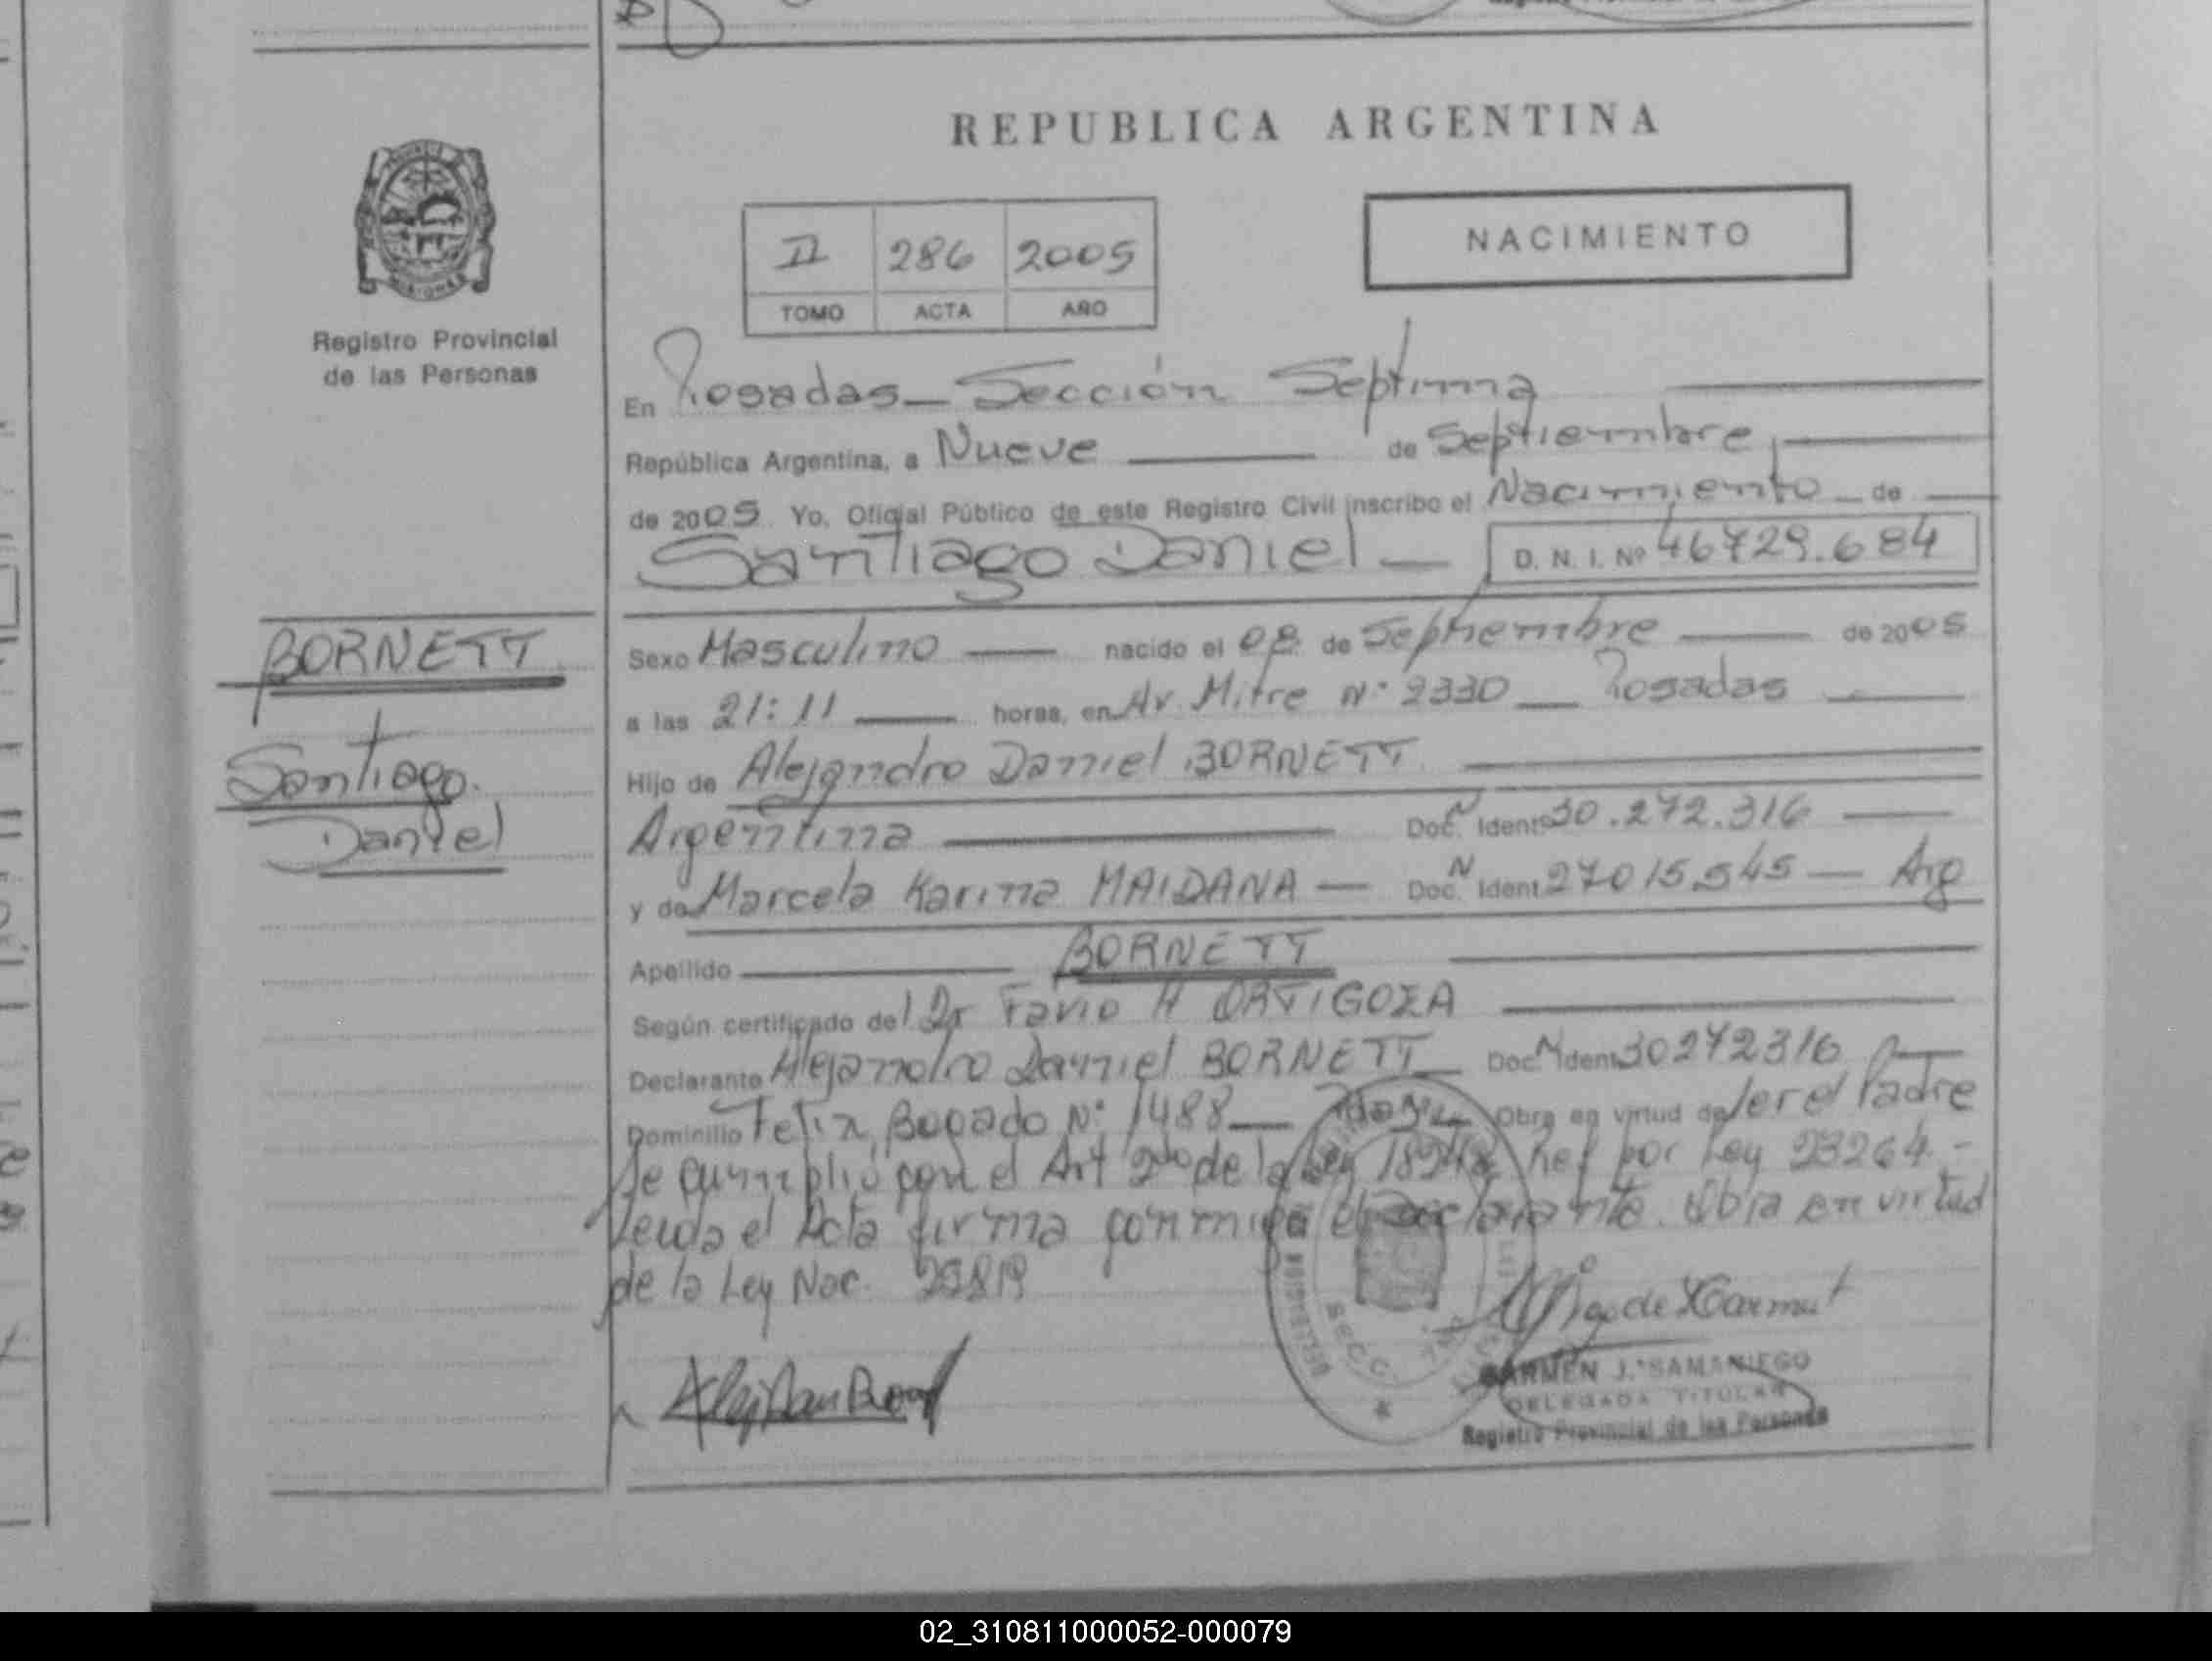 REPUBLICA ARGENTINA
NACIMIENTO
II 286 2005
TOMO ACTA AÑO
Registro Provincial
de las Personas
En Posadas - Sección Septima
República Argentina, a Nueve de Septiembre
de 2005. Yo, Oficial Público de este Registro Civil inscribo el Nacimiento de
Santiago Daniel D. N. I. Nº 46729.684
BORNETT
Santiago
Daniel
Sexo Masculino nacido el 08 de Septiembre de 2005
a las 21:11 horas, en Av. Mitre Nº 2330 Posadas
Hijo de Alejandro Daniel BORNETT
Argentina Doc. N Ident. 30.272.316
y de Marcela Karina MAIDANA Doc. N Ident. 27015.545 Arg
Apellido BORNETT
Según certificado del Dr Favio A ORTIGOZA
Declarante Alejandro Daniel BORNETT Doc. N Ident. 30272316
Domicilio Felix Bogado Nº 1488 Obra en virtud de ser el Padre
Se cumplió con el Art 2do de la Ley 18248 por Ley 23264.-
Leida el Acta firma conmigo el declarante. Obra en virtud
de la Ley Nac.
SECC.
CARMEN J. SAMANIEGO
DELEGADA TITULAR
Registro Provincial de las Personas
02_310811000052-000079